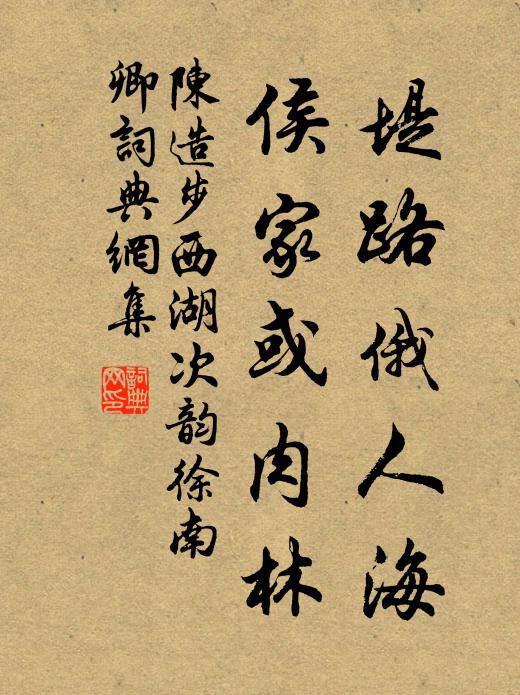 堤路俄人海
侯家或肉林
陳造步西湖次韵徐南
卿詞典網集
詞典
网印